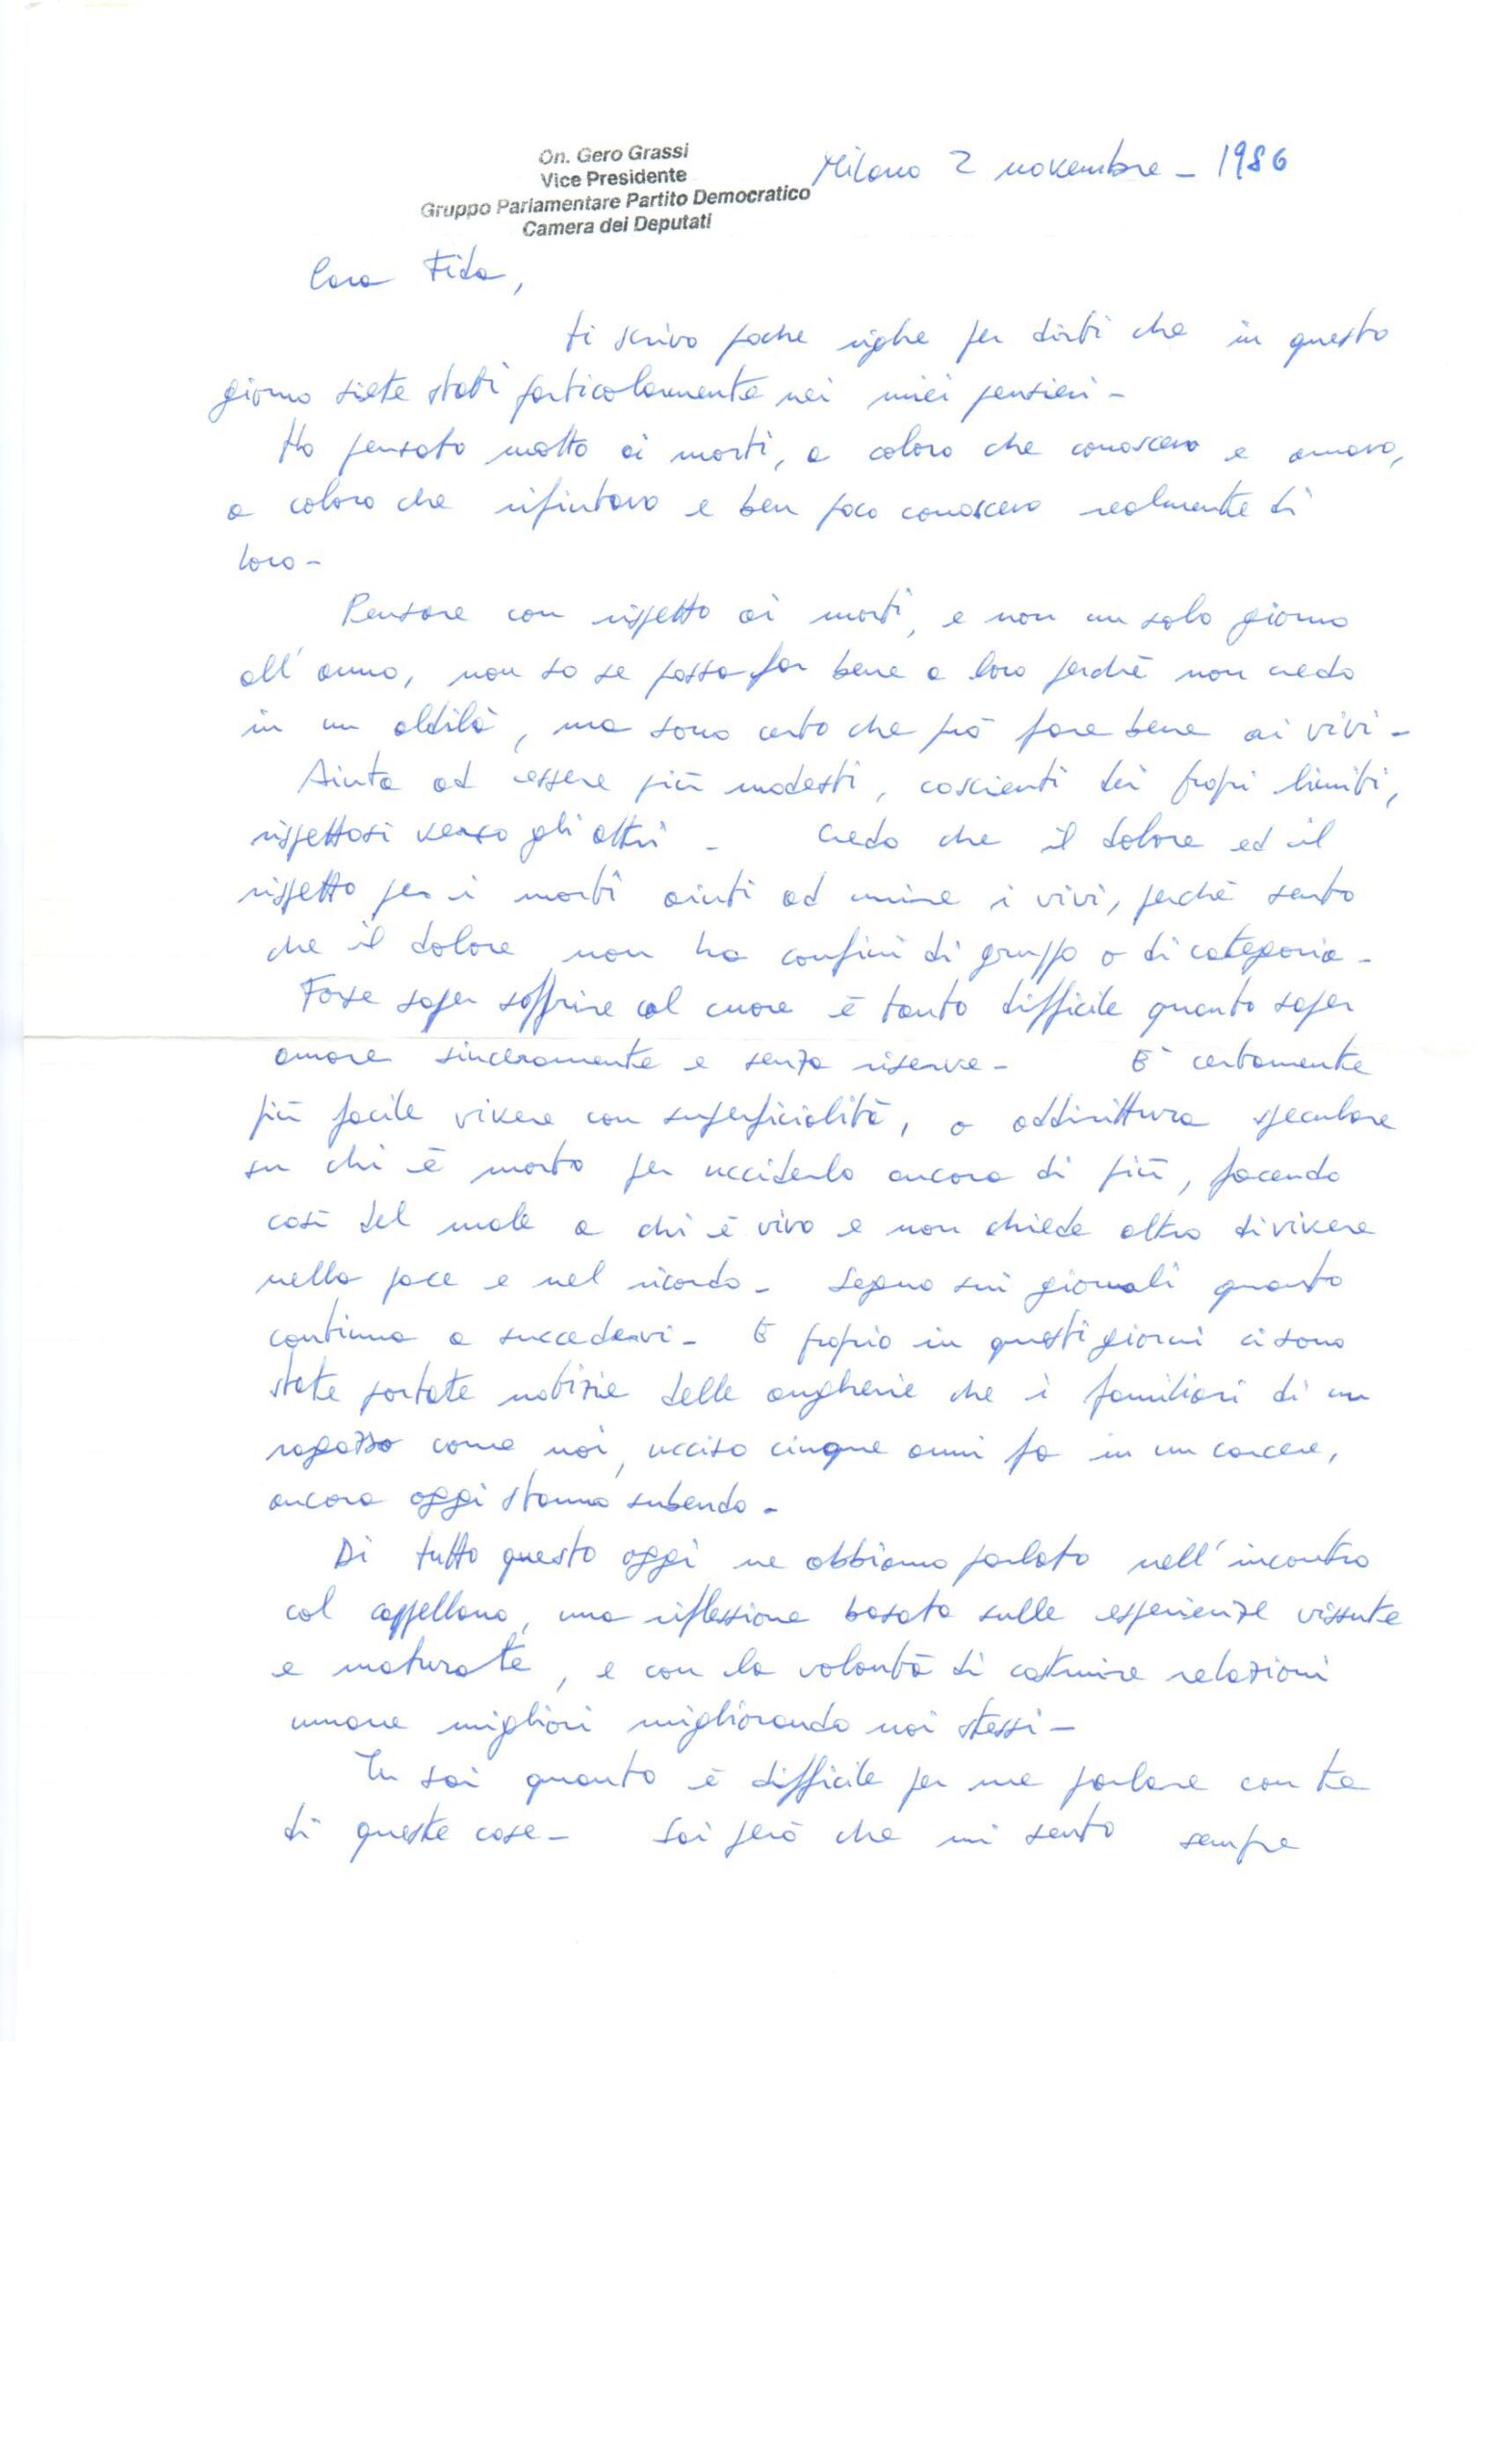 On. Gero Grassi
Vice Presidente
Gruppo Parlamentare Partito Democratico
Camera dei Deputati
Milano 2 novembre - 1986
Cara Fida,
ti scrivo poche righe per dirti che in questo
giorno siete stati particolarmente nei miei pensieri -
Ho pensato molto ai morti, a coloro che conoscevo e amavo,
a coloro che rifiutavo e ben poco conoscevo realmente di
loro -
Pensare con rispetto ai morti, e non un solo giorno
all'anno, non so se possa far bene a loro perchè non credo
in un aldilà, ma sono certo che può fare bene ai vivi -
Aiuta ad essere più modesti, coscienti dei propri limiti,
rispettosi verso gli altri - Credo che il dolore ed il
rispetto per i morti aiuti ad unire i vivi, perchè sento
che il dolore non ha confini di gruppo o di categoria -
Forse saper soffrire col cuore è tanto difficile quanto saper
amare sinceramente e senza riserve - E' certamente
più facile vivere con superficialità, o addirittura speculare
su chi è morto per ucciderlo ancora di più, facendo
così del male a chi è vivo e non chiede altro di vivere
nella pace e nel ricordo - Seguo sui giornali quanto
continua a succedervi - E proprio in questi giorni ci sono
state portate notizie delle angherie che i familiari di un
ragazzo come noi, ucciso cinque anni fa in un carcere,
ancora oggi stanno subendo -
Di tutto questo oggi ne abbiamo parlato nell'incontro
col cappellano, una riflessione basata sulle esperienze vissute
e maturate, e con la volontà di costruire relazioni
umane migliori migliorando noi stessi -
Tu sai quanto è difficile per me parlare con te
di queste cose - Sai però che mi sento sempre